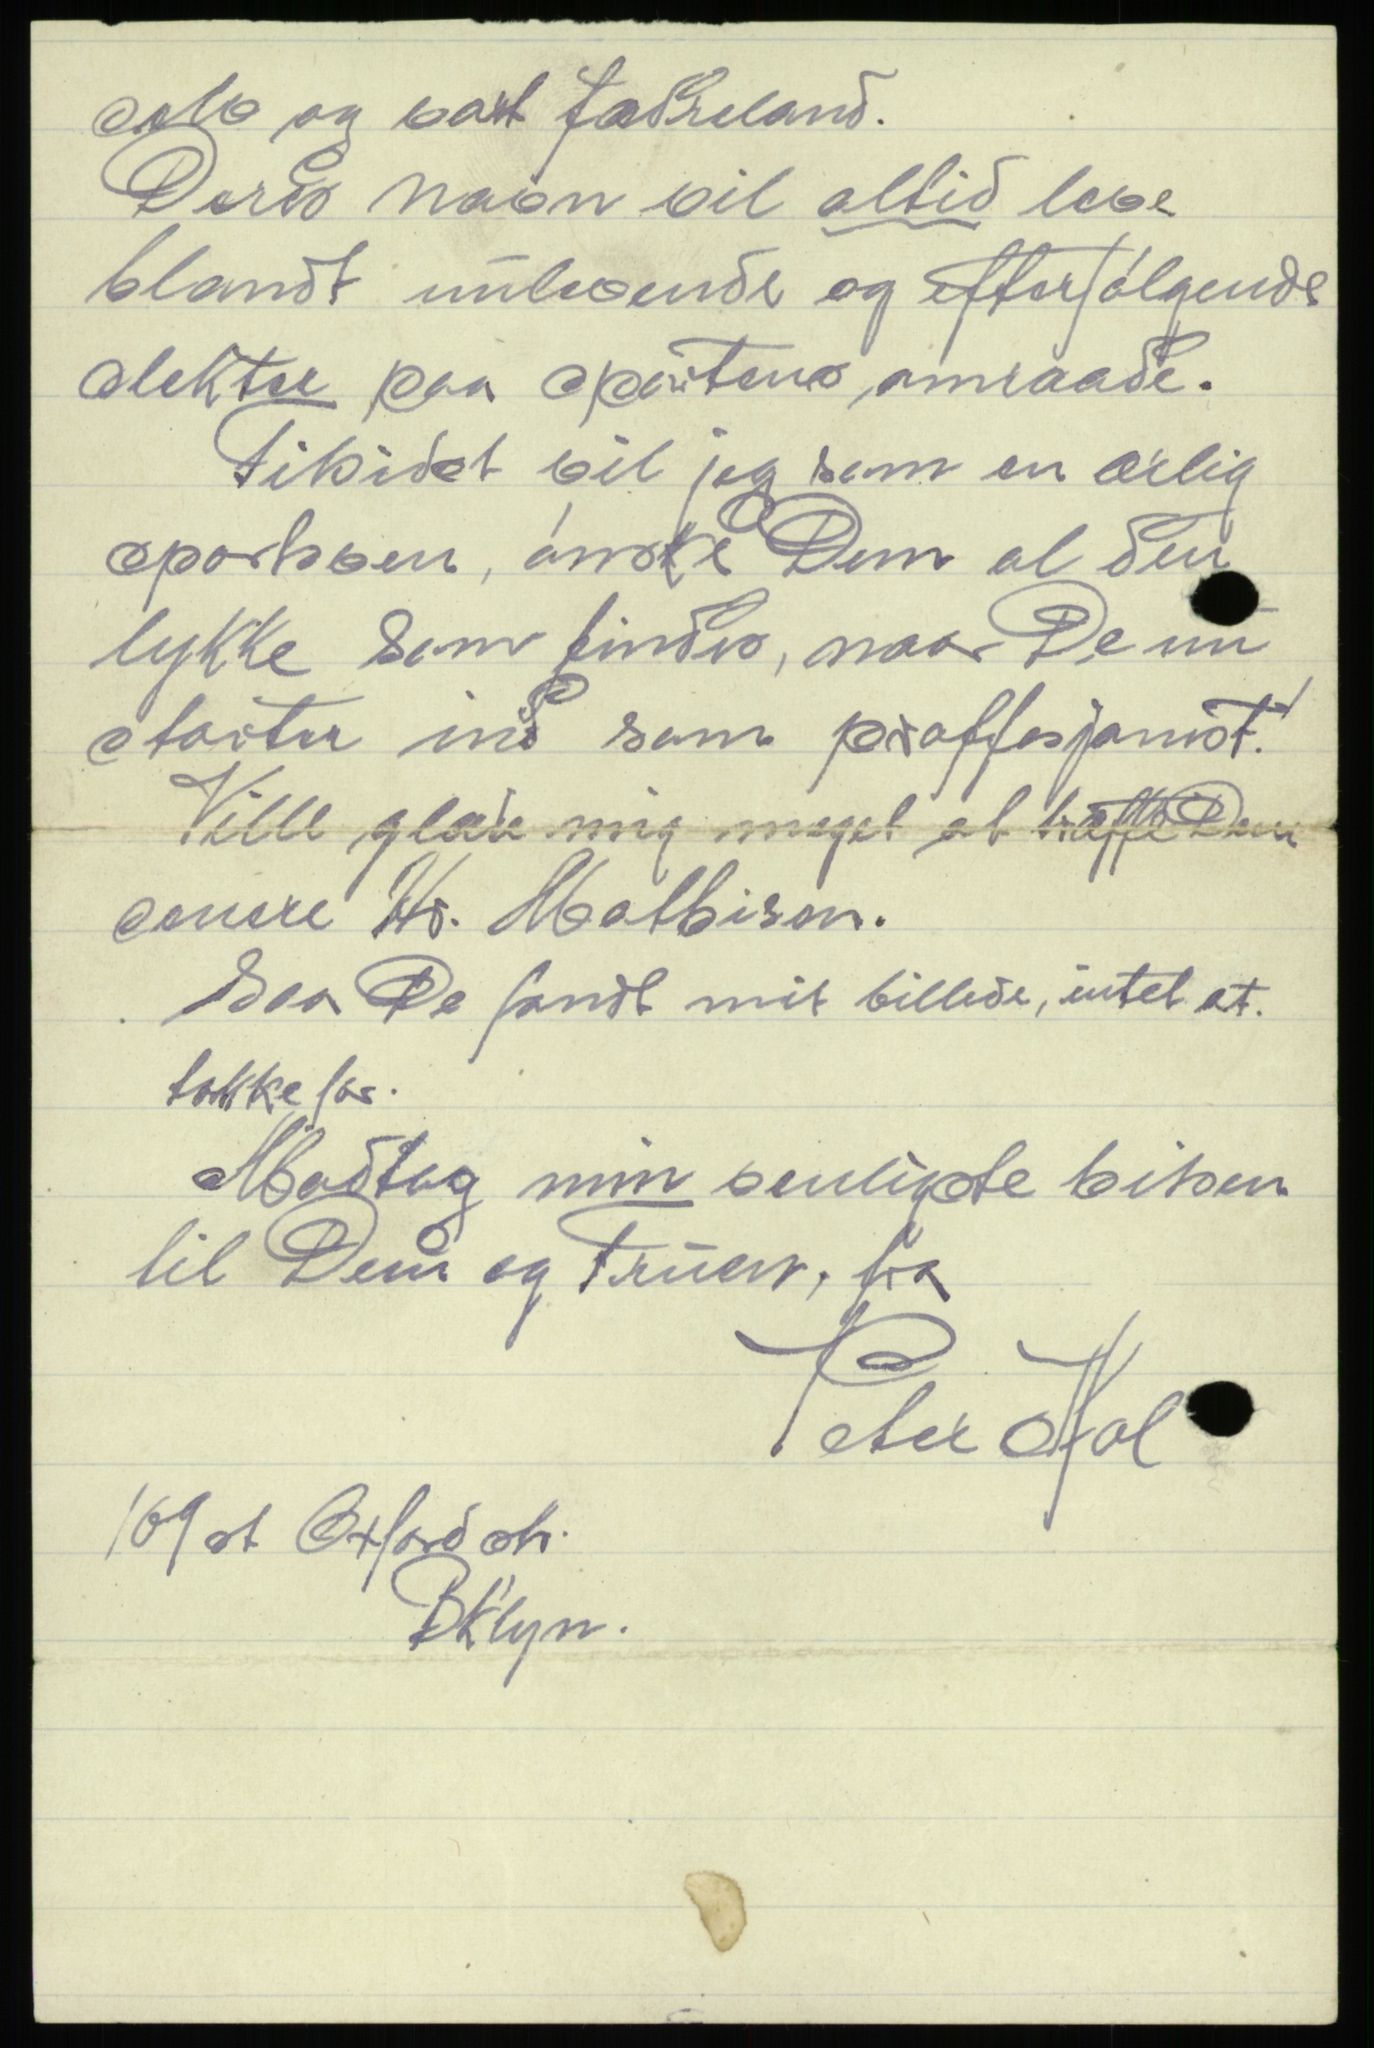 selv og vort fædreland.
Deres navn vil altid leve
blandt nulevende og efterfølgende
slekter paa sportens omraade.
Tilsidst vil jeg som en ærlig
sportsven, ønske Dem al den
lykke som findes, naar De nu
starter ind som proffesjonist!
Ville glæde mig meget at træffe Dem
senere Hr. Mathisen.
Saa De fandt mit billede, intet at
takke for.
Modtag min venligste hilsen
til Dem og Fruen, fra
Peter Hol
169 st Oxford str.
Bk'lyn.